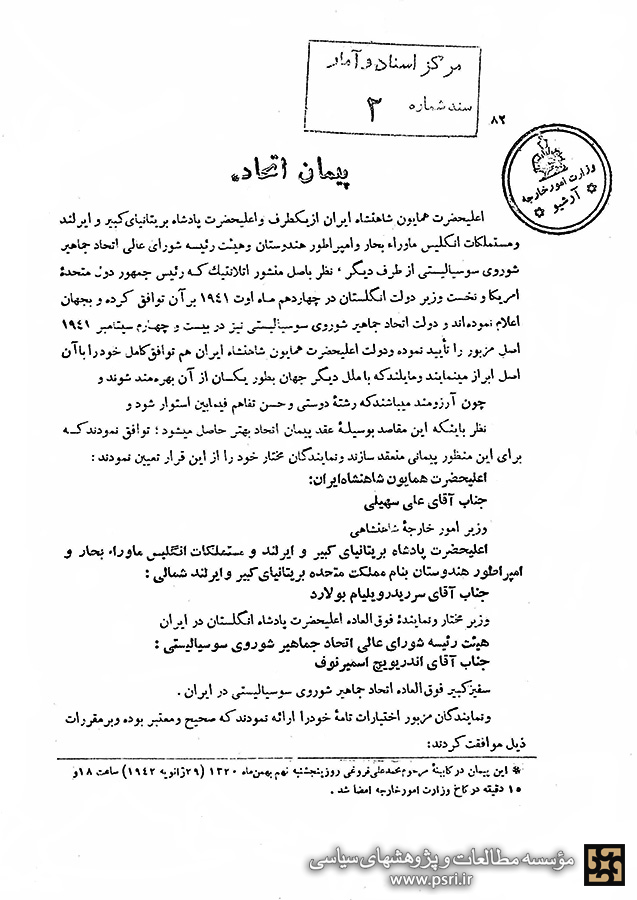 مرکز اسناد و آمار
سند شماره ۲
۸۲
وزارت امور خارجه
آرشیو
پیمان اتحاد*
اعلیحضرت همایون شاهنشاه ایران از یکطرف و اعلیحضرت پادشاه بریتانیای کبیر و ایرلند
و مستملکات انگلیس ماوراء بحار و امپراطور هندوستان و هیئت رئیسه شورای عالی اتحاد جماهیر
شوروی سوسیالیستی از طرف دیگر، نظر باصل منشور اتلانتیک که رئیس جمهور دول متحدهٔ
امریکا و نخست وزیر دولت انگلستان در چهاردهم ماه اوت ۱۹۴۱ بر آن توافق کرده و بجهان
اعلام نموده‌اند و دولت اتحاد جماهیر شوروی سوسیالیستی نیز در بیست و چهارم سپتامبر ۱۹۴۱
اصل مزبور را تأیید نموده و دولت اعلیحضرت همایون شاهنشاه ایران هم توافق کامل خود را با آن
اصل ابراز مینمایند و مایلند که با ملل دیگر جهان بطور یکسان از آن بهره‌مند شوند و
چون آرزومند میباشند که رشتهٔ دوستی و حسن تفاهم فیمابین استوار شود و
نظر باینکه این مقاصد بوسیلهٔ عقد پیمان اتحاد بهتر حاصل میشود؛ توافق نمودند که
برای این منظور پیمانی منعقد سازند و نمایندگان مختار خود را از این قرار تعیین نمودند:
اعلیحضرت همایون شاهنشاه ایران:
جناب آقای علی سهیلی
وزیر امور خارجهٔ شاهنشاهی
اعلیحضرت پادشاه بریتانیای کبیر و ایرلند و مستملکات انگلیس ماوراء بحار و
امپراطور هندوستان بنام مملکت متحده بریتانیای کبیر و ایرلند شمالی:
جناب آقای سر ریدر ویلیام بولارد
وزیر مختار و نمایندهٔ فوق‌العاده اعلیحضرت پادشاه انگلستان در ایران
هیئت رئیسه شورای عالی اتحاد جماهیر شوروی سوسیالیستی:
جناب آقای اندریویچ اسمیرنوف
سفیر کبیر فوق‌العاده اتحاد جماهیر شوروی سوسیالیستی در ایران.
و نمایندگان مزبور اختیارات تامهٔ خود را ارائه نمودند که صحیح و معتبر بوده و بر مقررات
ذیل موافقت کردند:
* این پیمان در کابینهٔ مرحوم محمدعلی فروغی روز پنجشنبه نهم بهمن‌ماه ۱۳۲۰ (۲۹ ژانویه ۱۹۴۲) ساعت ۱۸ و
۱۵ دقیقه در کاخ وزارت امور خارجه امضا شد.
مؤسسه مطالعات و پژوهشهای سیاسی
www.psri.ir